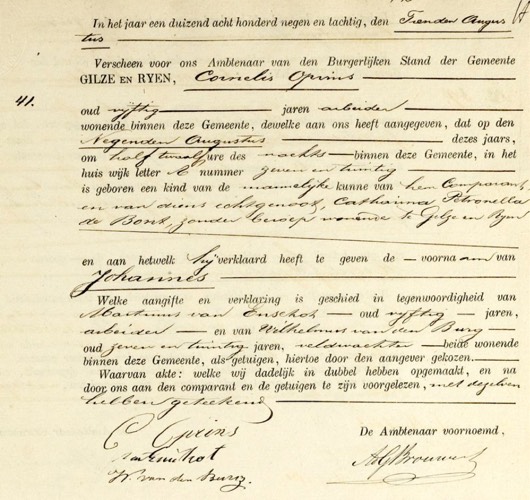 In het jaar een duizend acht honderd negen en tachtig, den Tienden Augus
tus
Verscheen voor ons Ambtenaar van den Burgerlijken Stand der Gemeente
GILZE EN RYEN, Cornelis Oprins
41.
oud vyftig jaren arbeider
wonende binnen deze Gemeente, dewelke aan ons heeft aangegeven, dat op den
Negenden Augustus dezes jaars,
om half twaalf ure des nachts binnen deze Gemeente, in het
huis wijk letter A nummer zeven en twintig
is geboren een kind van de mannelijke kunne van hem Comparant
en van diens echtgenoot, Catharina Petronella
de Bont, zonder beroep wonende te Gilze en Ryen
en aan hetwelk hij verklaard heeft te geven de voornaam van
Johannes
Welke aangifte en verklaring is geschied in tegenwoordigheid van
Martinus van Enschot oud vyftig jaren,
arbeider en van Wilhelmus van den Burg
oud zeven en twintig jaren, veldwachter beide wonende
binnen deze Gemeente, als getuigen, hiertoe door den aangever gekozen.
Waarvan akte: welke wij dadelijk in dubbel hebben opgemaakt, en na
door ons aan den comparant en de getuigen te zijn voorgelezen, met dezelven
hebben geteekend
C Oprins
van Enschot
W. van den Burg.
De Ambtenaar voornoemd,